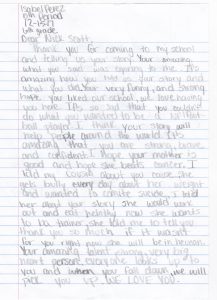 Isabel Perez
6th Period
12-15-17
6th grade
Dear Nick Scott,
Thank you for coming to my school
and telling us your story. Your amazing
what you said was inspiring to me. It's
amazing how you told us your story and
what you did. Your very funny, and strong
hope you liked our school, we love having
you here. It's so sad that you couldn't
do what you wanted to be a
ball player. I think your story will
help people around the world. It's
amazing that you are strong, brave
and confident. I hope your mother is
good and hope she beats cancer. I
told my cousin about you cause she
gets bully every day about her weight
and wanted to comite suicide, I told
her about your story she would work
out and eat helthy now she wants
to be a trainer, she told me to tell you
thank you so much if it wasn't
for you right now she will be in heaven.
Your amazing talent strong, very big
heart person. she looks up to
you and when you fall down, we will
pick you up. WE LOVE YOU.